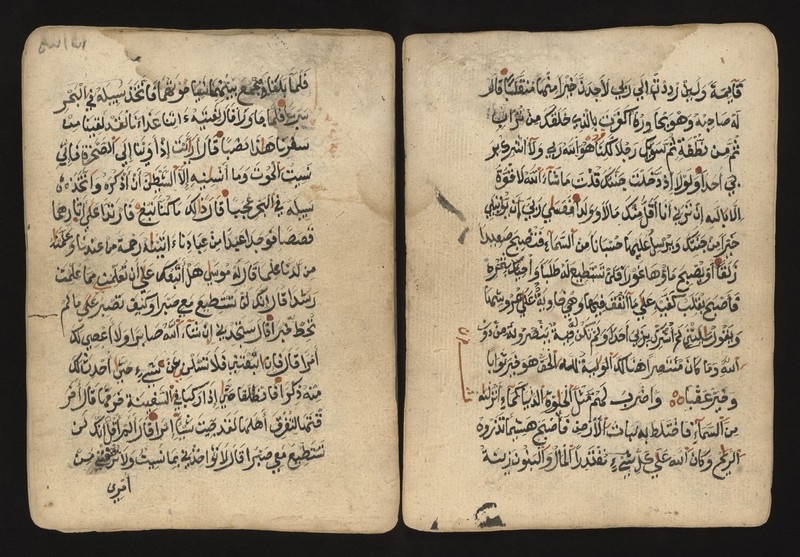 قآيمة ولين رددت إلى ربي لأجدن خيرا منها منقلبا قال
له صاحبه وهو يحاوره أكفرت بالذي خلقك من تراب
ثم من نطفة ثم سويك رجلا لكنا هو الله ربي ولا أشرك بر
بي أحدا ولولا إذ دخلت جنتك قلت ما شاء الله لا قوة
إلا بالله إن ترن أنا أقل منك مالا وولدا فعسى ربي أن يوتيني
خيرا من جنتك ويرسل عليها حسبانا من السماء فتصبح صعيدا
زلقا أو يصبح ماؤها غورا فلن تستطيع له طلبا وأحيط بثمره
فأصبح يقلب كفيه على ما أنفق فيها وهي خاوية على عروشها
ويقول يليتني لم أشرك بربي أحدا ولم تكن له فئة ينصرونه من دو
الله وما كان منتصرا هنالك الولية لله الحق هو خير ثوابا
وخير عقبا واضرب لهم مثل الحيوة الدنيا كماء أنزلنه
من السماء فاختلط به نبات الأرض فأصبح هشيما تذروه
الريح وكان الله على كل شيء مقتدرا المال والبنون زينة
فلما بلغا مجمع بينهما نسيا حوتهما فاتخذ سبيله في البحر
سربا فلما جاوزا قال لفتيه ءاتنا غداءنا لقد لقينا من
سفرنا هذا نصبا قال أرأيت إذ أوينا إلى الصخرة فإني
نسيت الحوت وما أنسنيه إلا الشيطن أن أذكره واتخذ
سبيله في البحر عجبا قال ذلك ما كنا نبغ فارتدا على آثارهما
قصصا فوجدا عبدا من عبادنا ءاتينه رحمة من عندنا وعلمنه
من لدنا علما قال له موسى هل أتبعك على أن تعلمن مما علمت
رشدا قال إنك لن تستطيع معي صبرا وكيف تصبر على ما لم
تحط خبرا قال ستجدني إن شاء الله صابرا ولا أعصي لك
أمرا قال فإن اتبعتني فلا تسئلني عن شيء حتى أحدث لك
منه ذكرا فانطلقا حتى إذا ركبا في السفينة خرقها قال أخر
قتها لتغرق أهلها لقد جئت شيئا إمرا قال ألم أقل إنك لن
تستطيع معي صبرا قال لا تؤاخذني بما نسيت ولا ترهقني من
أمري